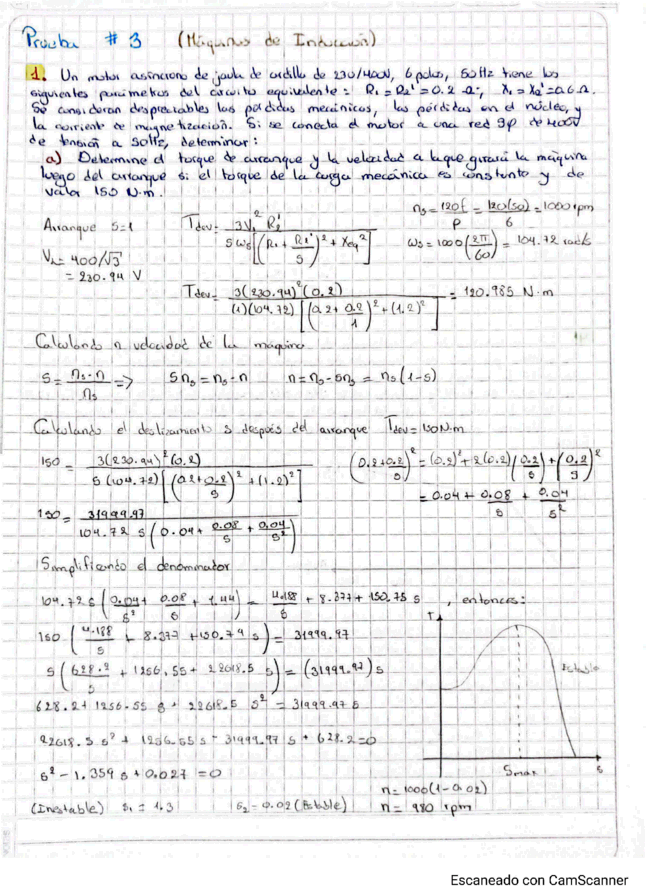 Prueba # 3 (Máquinas de Inducción)
1. Un motor asíncrono de jaula de ardilla de 230/400V, 6 polos, 50Hz tiene los
siguientes parámetros del circuito equivalente: R₁ = R₂' = 0.2 Ω; X₁ = X₂' = 0.6 Ω.
Se consideran despreciables las pérdidas mecánicas, las pérdidas en el núcleo, y
la corriente de magnetización. Si se conecta el motor a una red 3φ de 400V
de tensión a 50Hz, determinar:
a) Determine el torque de arranque y la velocidad a la que girará la máquina
luego del arranque si el torque de la carga mecánica es constante y de
valor 150 N.m.
Arranque S=1
V₁ = 400/√3
= 230.94 V
Tdev = 3V₁² R₂' / S ωs[(R₁ + R₂'/S)² + Xeq²]
ns = 120f/P = 120(50)/6 = 1000 rpm
ωs = 1000(2π/60) = 104.72 rad/s
Tdev = 3(230.94)²(0.2) / (1)(104.72)[(0.2 + 0.2/1)² + (1.2)²] = 120.985 N·m
Calculando n velocidad de la máquina
S = ns - n / ns => Sns = ns - n n = ns - Sns = ns(1-S)
Calculando el deslizamiento s después del arranque Tdev = 150N.m
150 = 3(230.94)²(0.2) / S(104.72)[(0.2+0.2/S)² + (1.2)²]
(0.2+0.2/S)² = (0.2)² + 2(0.2)(0.2/S) + (0.2/S)²
= 0.04 + 0.08/S + 0.04/S²
150 = 31999.97 / 104.72 S(0.04 + 0.08/S + 0.04/S²)
Simplificando el denominador
104.72 S(0.04/S² + 0.08/S + 1.44) = 4.188/S + 8.377 + 150.75 S, entonces:
150(4.188/S + 8.377 + 150.79 S) = 31999.97
S(628.2/S + 1256.55 + 22618.5 S) = (31999.97)S
628.2 + 1256.55 S + 22618.5 S² = 31999.97 S
22618.5 S² + 1256.55 S - 31999.97 S + 628.2 = 0
S² - 1.359 S + 0.027 = 0
(Inestable) S₁ = 1.3 S₂ = 0.02 (Estable)
T
Estable
Smax
S
n = 1000(1-0.02)
n = 980 rpm
Escaneado con CamScanner